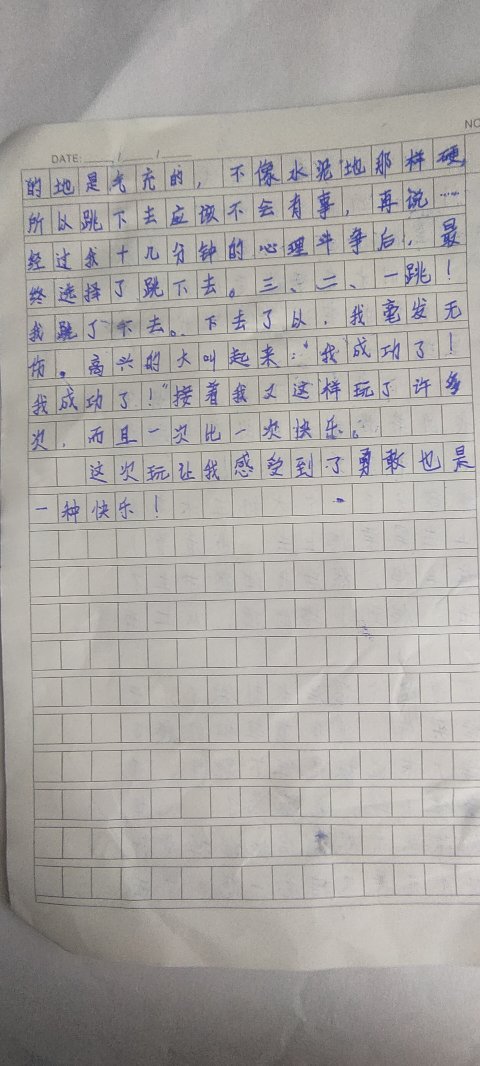 NO
DATE: / /
的地是气充的，不像水泥地那样硬，
所以跳下去应该不会有事，再说……
经过我十几分钟的心理斗争后，最
终选择了跳下去。三、二、一跳！
我跳了下去。下去了以，我毫发无
伤。高兴的大叫起来：“我成功了！
我成功了！”接着我又这样玩了许多
次，而且一次比一次快乐。
这次玩让我感受到了勇敢也是
一种快乐！